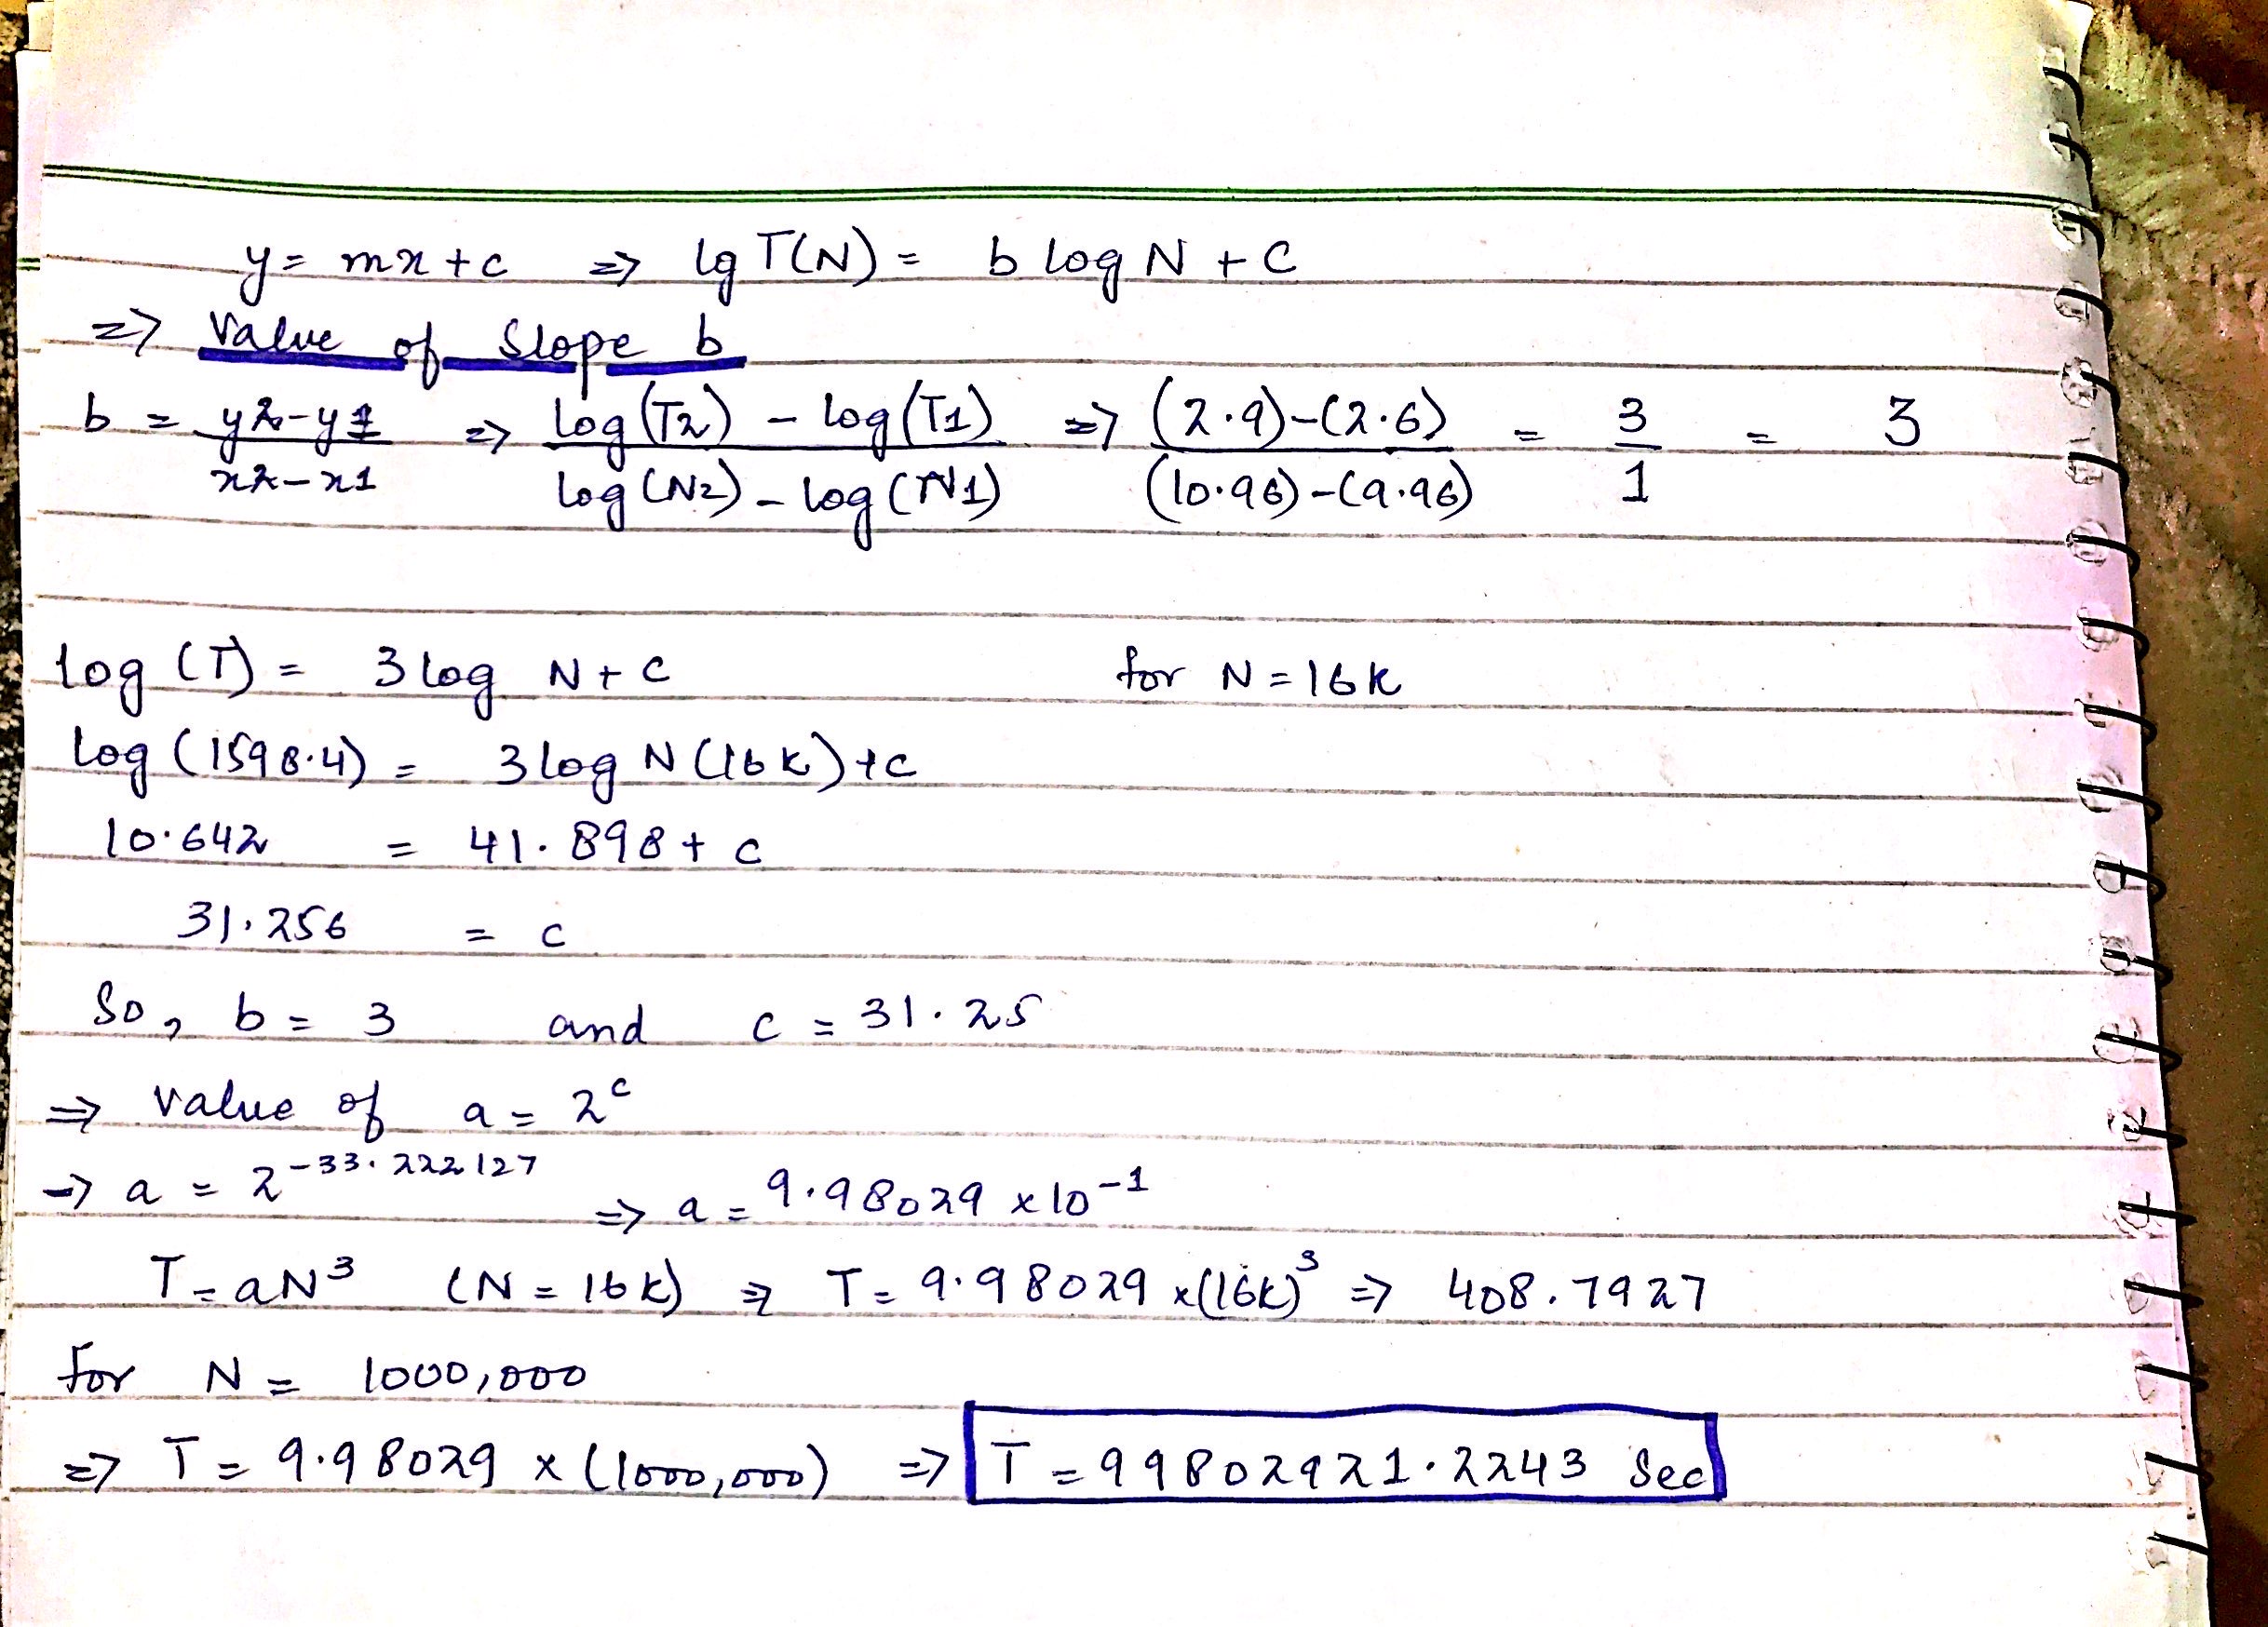 y = mx + c => lg T(N) = b log N + C
=> Value of Slope b
b = y2-y1 / x2-x1 => log(T2) - log(T1) / log(N2) - log(N1) => (2.9)-(2.6) / (10.96)-(9.96) = 3/1 = 3
log (T) = 3 log N + C for N = 16k
log (1598.4) = 3 log N (16k) + c
10.642 = 41.898 + c
31.256 = c
So, b = 3 and c = 31.25
=> value of a = 2^c
-> a = 2^-33.222127 => a = 9.98029 x 10^-1
T = aN^3 (N = 16k) => T = 9.98029 x (16k)^3 => 408.7927
for N = 1000,000
=> T = 9.98029 x (1000,000) => T = 99802921.2243 Sec